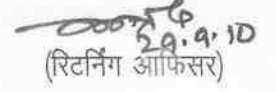 29.9.10
(रिटर्निंग आफिसर)